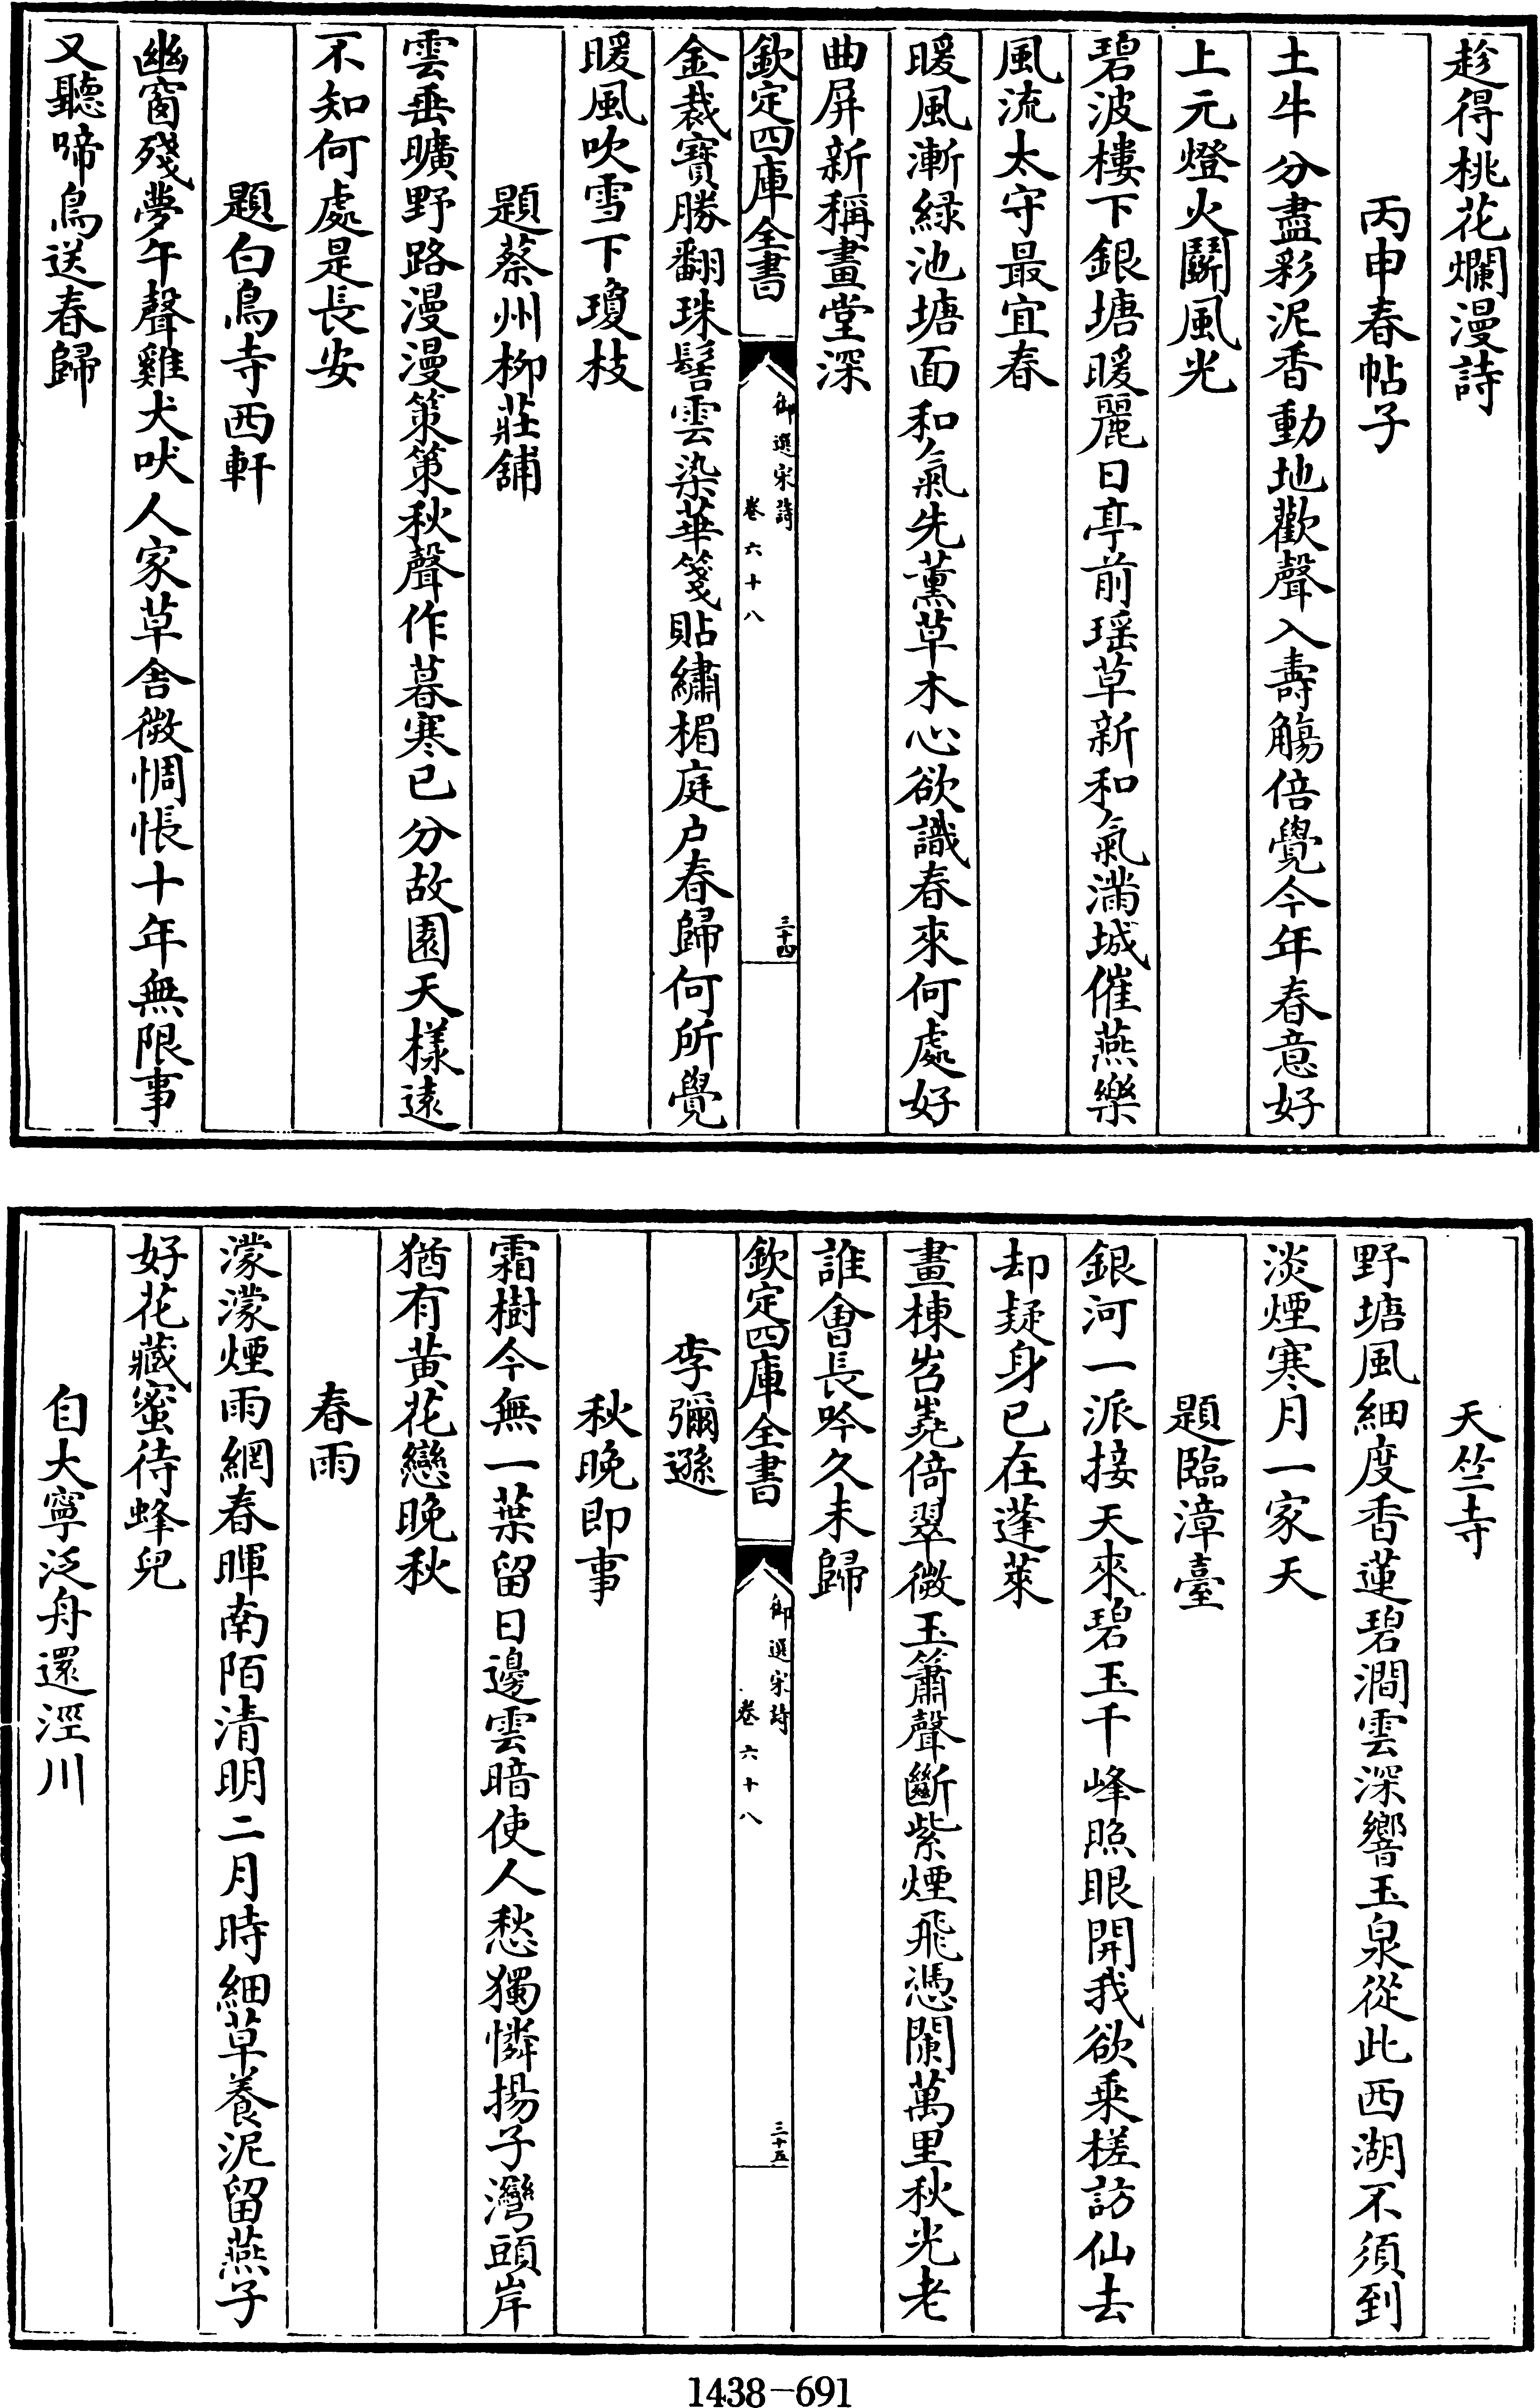 趁得桃花爛漫詩
丙申春帖子
土牛分盡彩泥香動地歡聲入壽觴倍覺今年春意好
上元燈火鬭風光
碧波樓下銀塘暖麗日亭前瑶草新和氣滿城催燕樂
風流太守最宜春
暖風漸緑池塘面和氣先薰草木心欲識春來何處好
曲屏新稱畫堂深
欽定四庫全書
御選宋詩
卷六十八
三十四
金裁寶勝翻珠髻雲染華箋貼繡楣庭户春歸何所覺
暖風吹雪下瓊枝
題蔡州柳莊舖
雲垂曠野路漫漫策策秋聲作暮寒已分故園天樣逺
不知何處是長安
題白鳥寺西軒
幽窗殘夢午聲雞犬吠人家草舍微惆悵十年無限事
又聽啼鳥送春歸
天竺寺
野塘風細度香蓮碧澗雲深響玉泉從此西湖不須到
淡煙寒月一家天
題臨漳臺
銀河一派接天來碧玉千峰照眼開我欲乗槎訪仙去
却疑身已在蓬萊
畫棟岧嶤倚翠微玉簫聲斷紫煙飛憑闌萬里秋光老
誰會長吟久未歸
欽定四庫全書
御選宋詩
卷六十八
三十五
李彌遜
秋晚即事
霜樹今無一葉留日邊雲暗使人愁獨憐揚子灣頭岸
猶有黄花戀晚秋
春雨
濛濛煙雨網春暉南陌清明二月時細草養泥留燕子
好花藏蜜待蜂兒
自大寧泛舟還涇川
1438-691